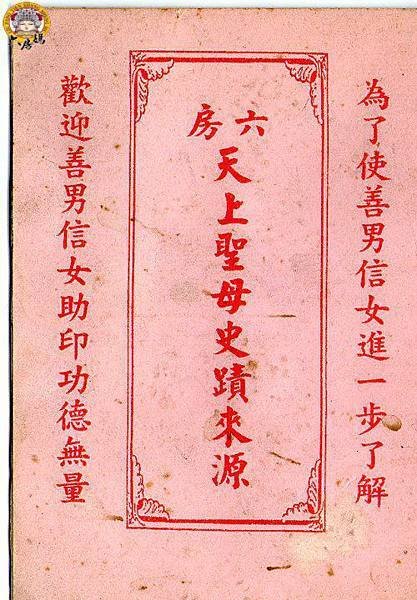 為了使善男信女進一步了解
六房
天上聖母史蹟來源
歡迎善男信女助印功德無量
六房媽